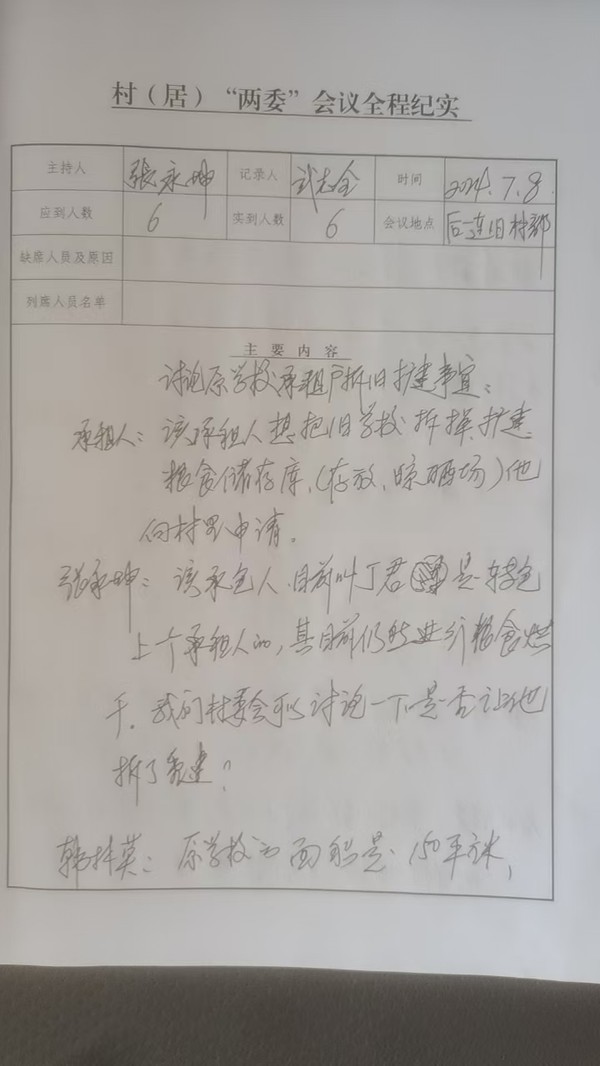 村（居）“两委”会议全程纪实
主持人 张永坤 记录人 武志全 时间 2024.7.8.
应到人数 6 实到人数 6 会议地点 后一连旧村部
缺席人员及原因
列席人员名单
主要内容
讨论原学校承租户拆旧扩建事宜：
承租人：该承租人想把旧学校拆掉，扩建
粮食储存库，（存放、晾晒场）他
向村里申请。
张永坤：该承包人，目前叫丁君 是转包
上个承租人的，其目前仍然进行粮食烘
干。我们村委会可以讨论一下，是否让他
拆了重建？
韩 英：原学校的面积是150平方米，